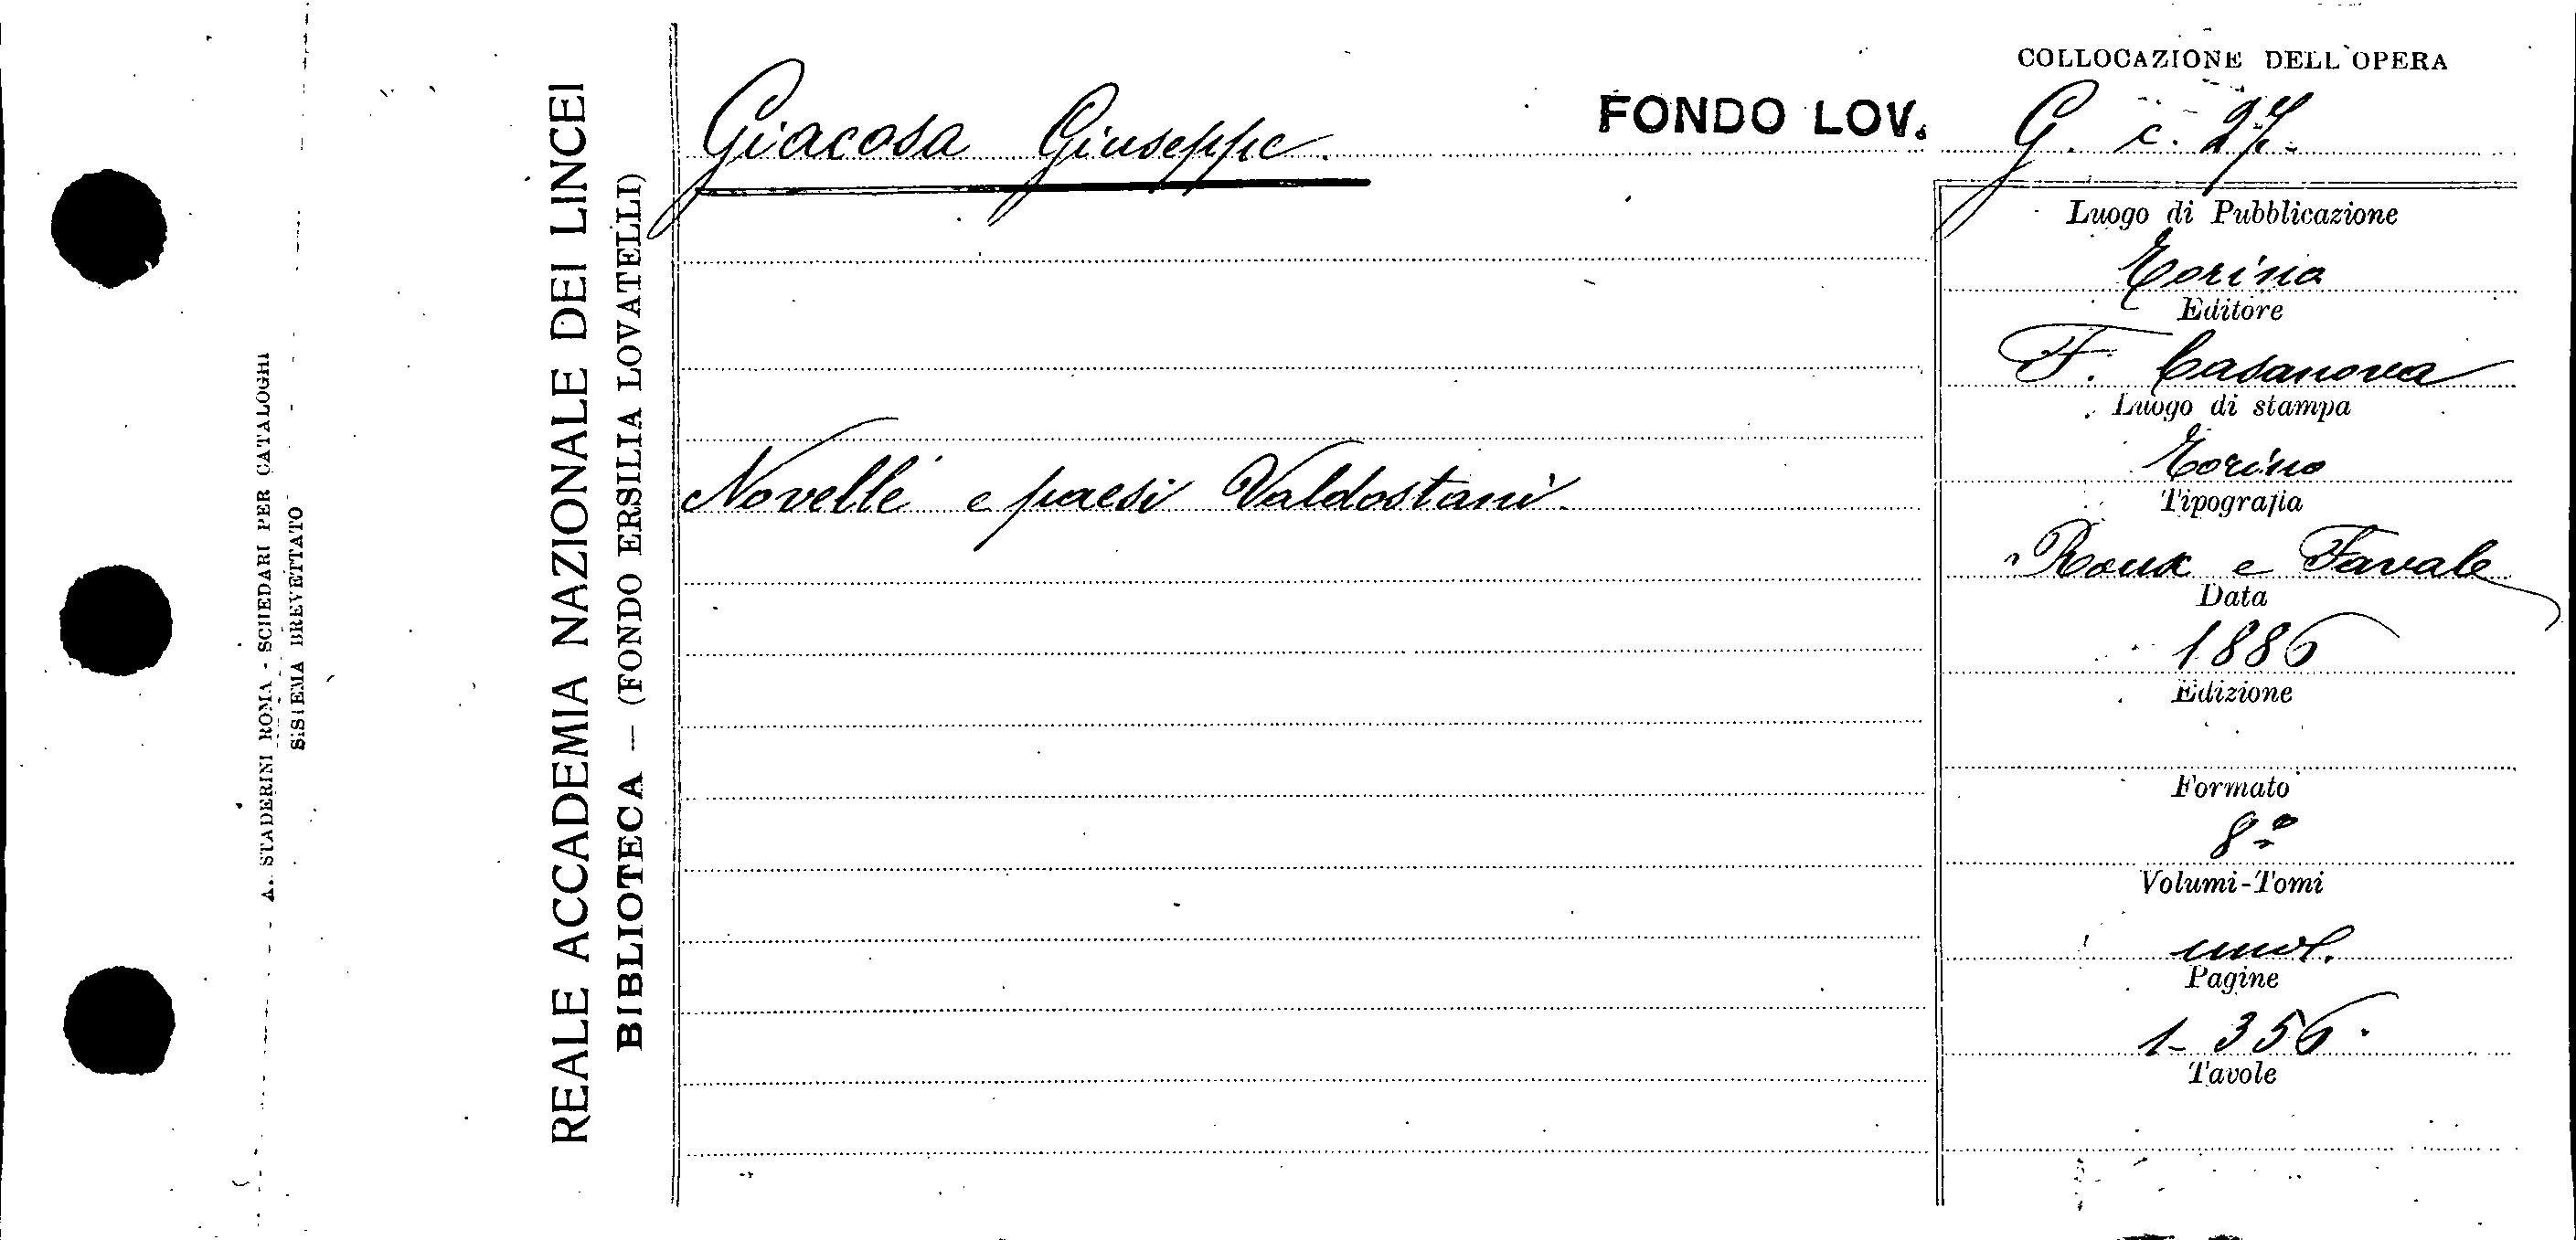 A. STADERINI ROMA - SCHEDARI PER CATALOGHI
SISTEMA BREVETTATO
REALE ACCADEMIA NAZIONALE DEI LINCEI
BIBLIOTECA — (FONDO ERSILIA LOVATELLI)
COLLOCAZIONE DELL'OPERA
Giacosa Giuseppe.
FONDO LOV. G. c. 27.
Novelle e paesi Valdostani.
Luogo di Pubblicazione
Torino
Editore
F. Casanova
Luogo di stampa
Torino
Tipografia
Roux e Favale
Data
1886
Edizione
Formato
8º
Volumi-Tomi
unol.
Pagine
1-356.
Tavole